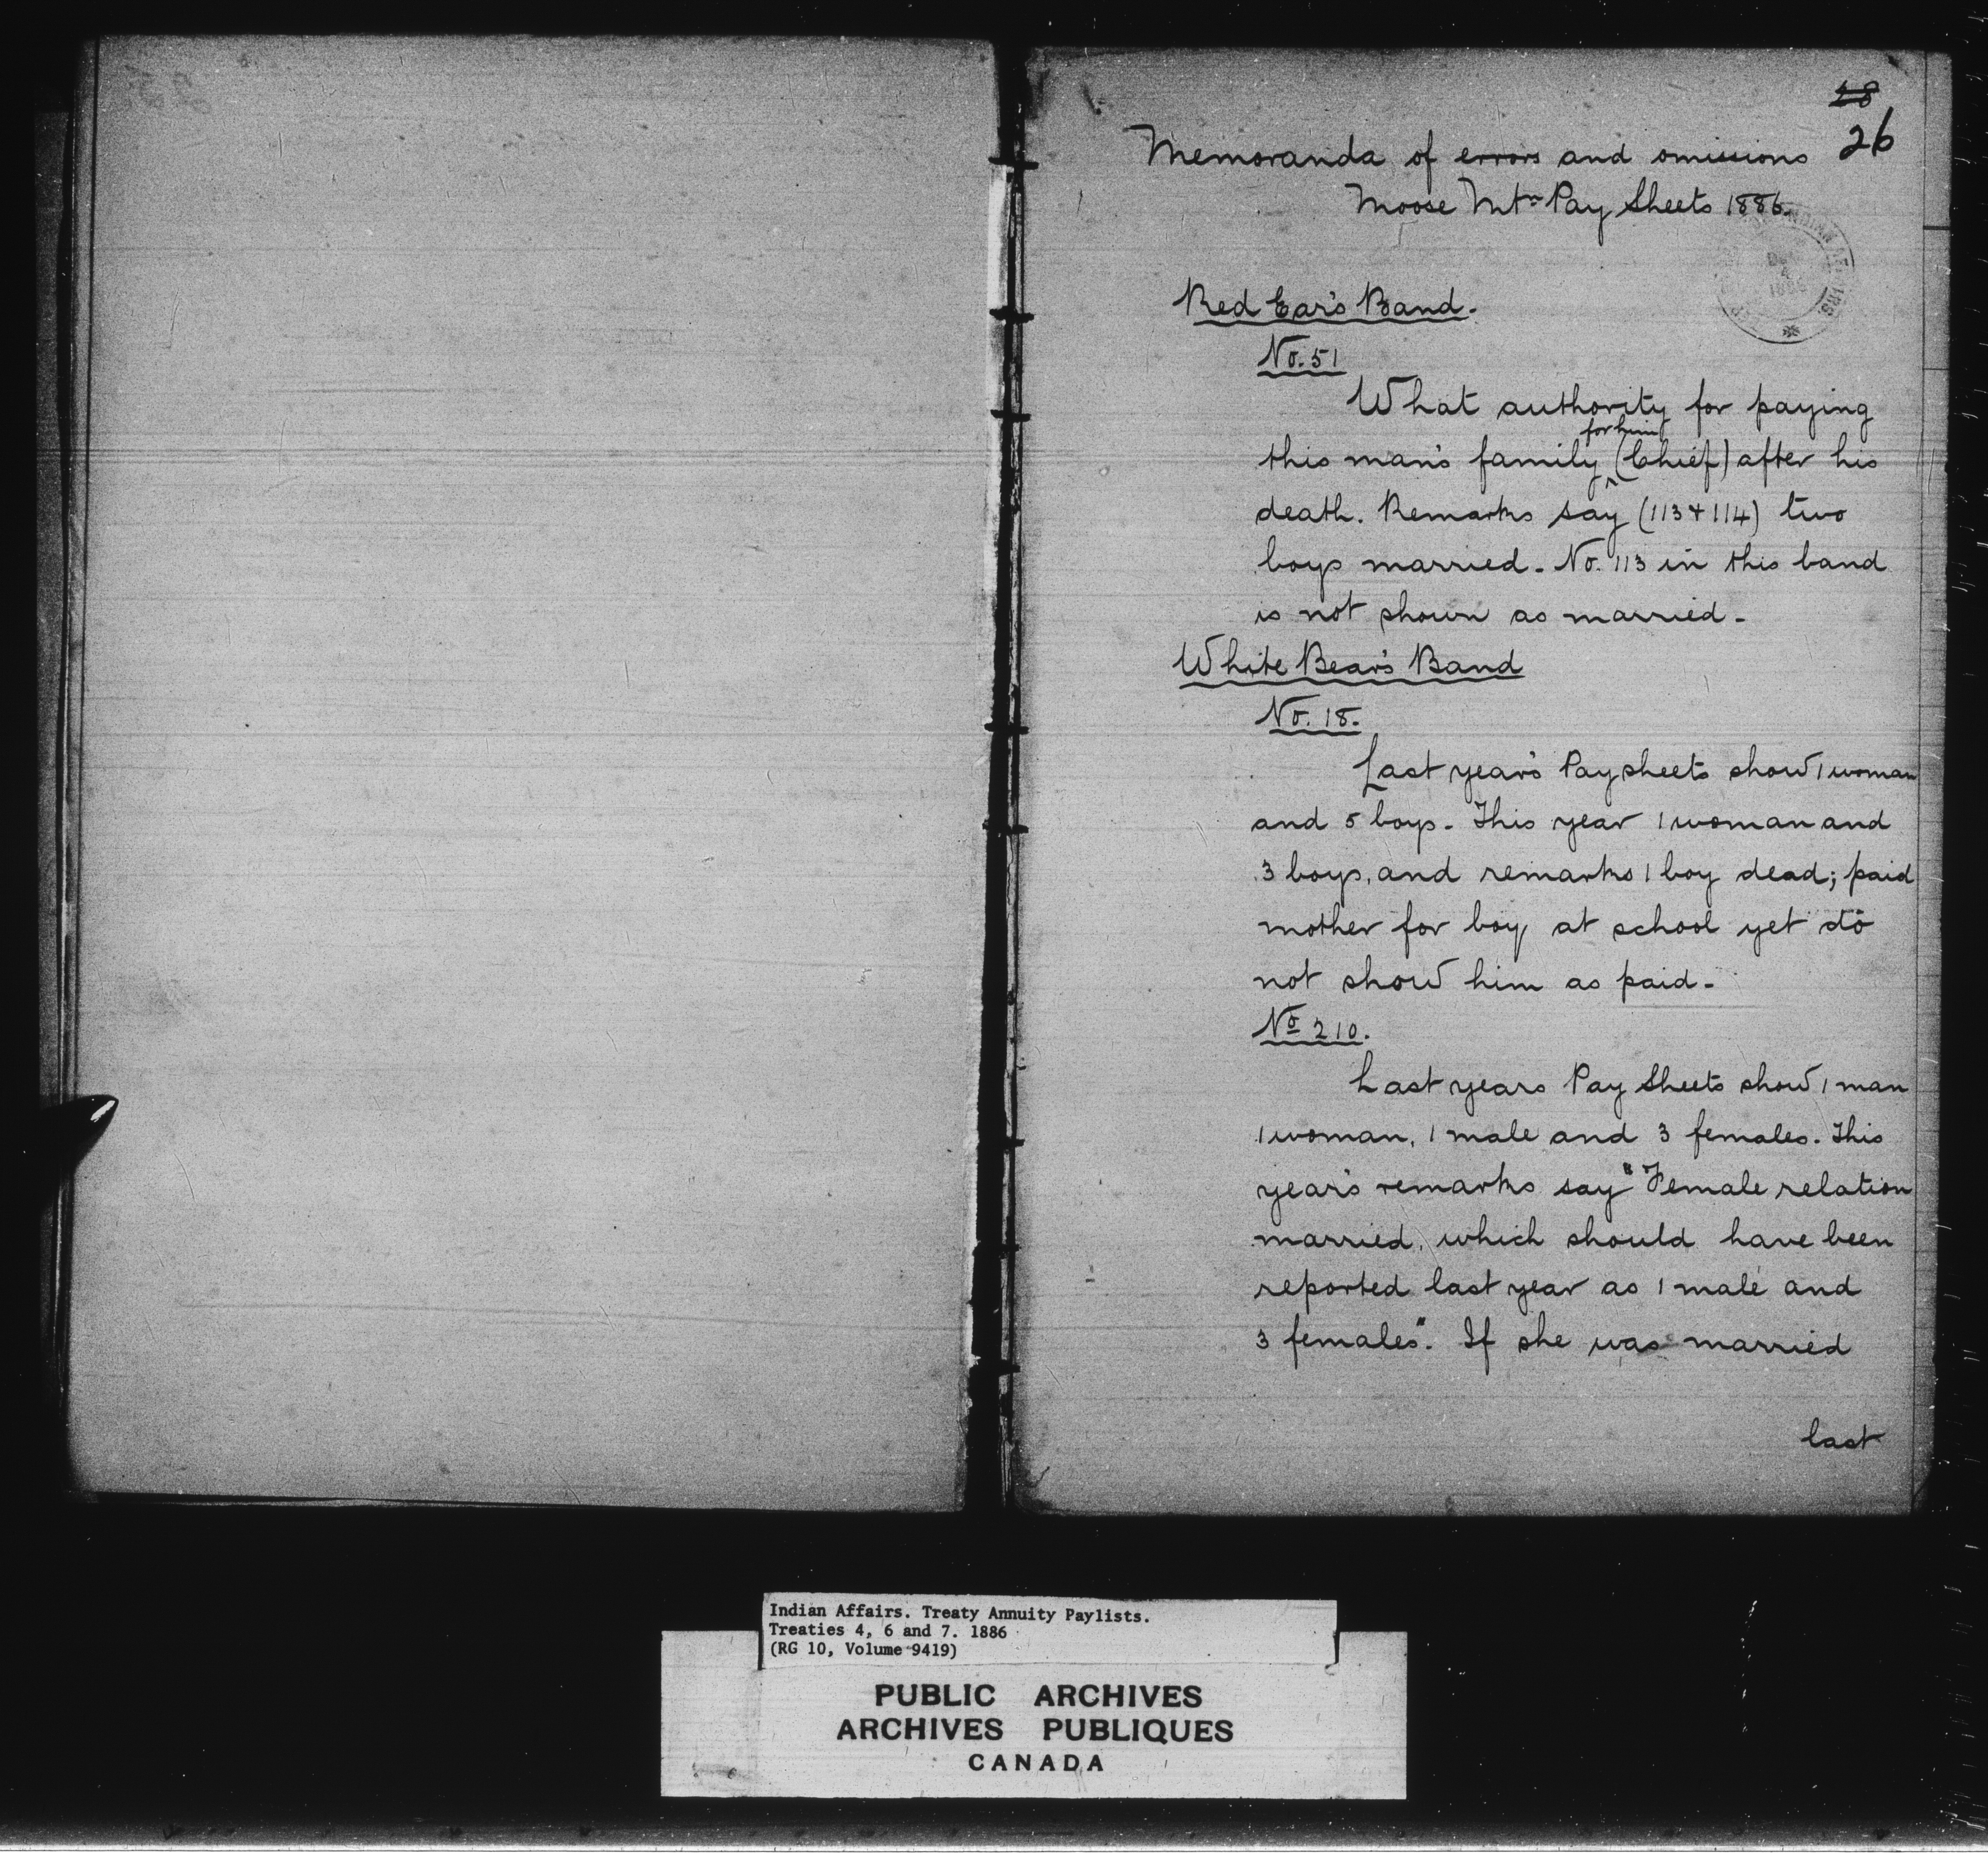 28
26
Memoranda of errors and omissions
Moose Mtn Pay Sheets 1886.
INDIAN AFFAIRS
DEC
4
1886
Red Ear's Band.
No. 51
What authority for paying
for him
this man's family (Chief) after his
death. Remarks say (113 & 114) two
boys married. No. 113 in this band
is not shown as married.
White Bear's Band
No. 18.
Last year's Pay sheets show 1 woman
and 5 boys. This year 1 woman and
3 boys, and remarks 1 boy dead; paid
mother for boy at school yet do
not show him as paid.
No 210.
Last years Pay Sheets show 1 man
1 woman, 1 male and 3 females. This
year's remarks say "Female relation
married, which should have been
reported last year as 1 male and
3 females". If she was married
last
Indian Affairs. Treaty Annuity Paylists.
Treaties 4, 6 and 7. 1886
(RG 10, Volume 9419)
PUBLIC ARCHIVES
ARCHIVES PUBLIQUES
CANADA